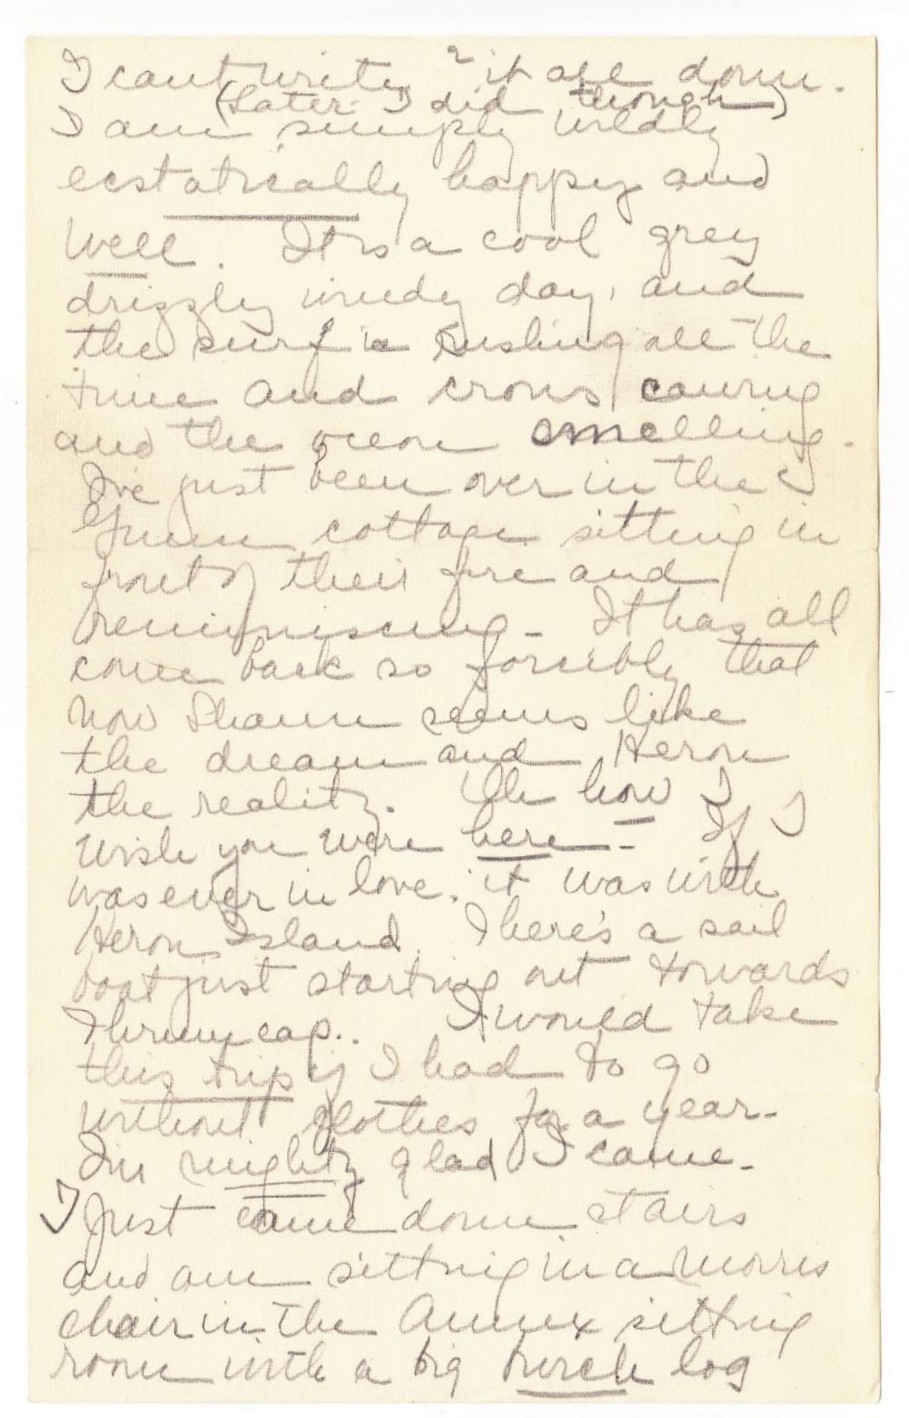 I cant write it all down.
(Later I did though)
I am simply wildly
ecstatically happy and
well. It is a cool grey
drizzly windy day, and
the surf is rushing all the
time and crows cawing
and the ocean smelling.
I've just been over in the
cottage sitting in
front of their fire and
reminiscing - It has all
come back so forcibly that
now seems like
the dream and Heron
the reality. Oh how I
wish you were here - If I
was ever in love, it was with
Heron Island. There's a sail
boat just starting out towards
Thrumcap.. I would take
this trip if I had to go
without clothes for a year-
I'm mighty glad I came-
I just came down stairs
and am sitting in a Morris
chair in the Annex sitting
room with a big birch log